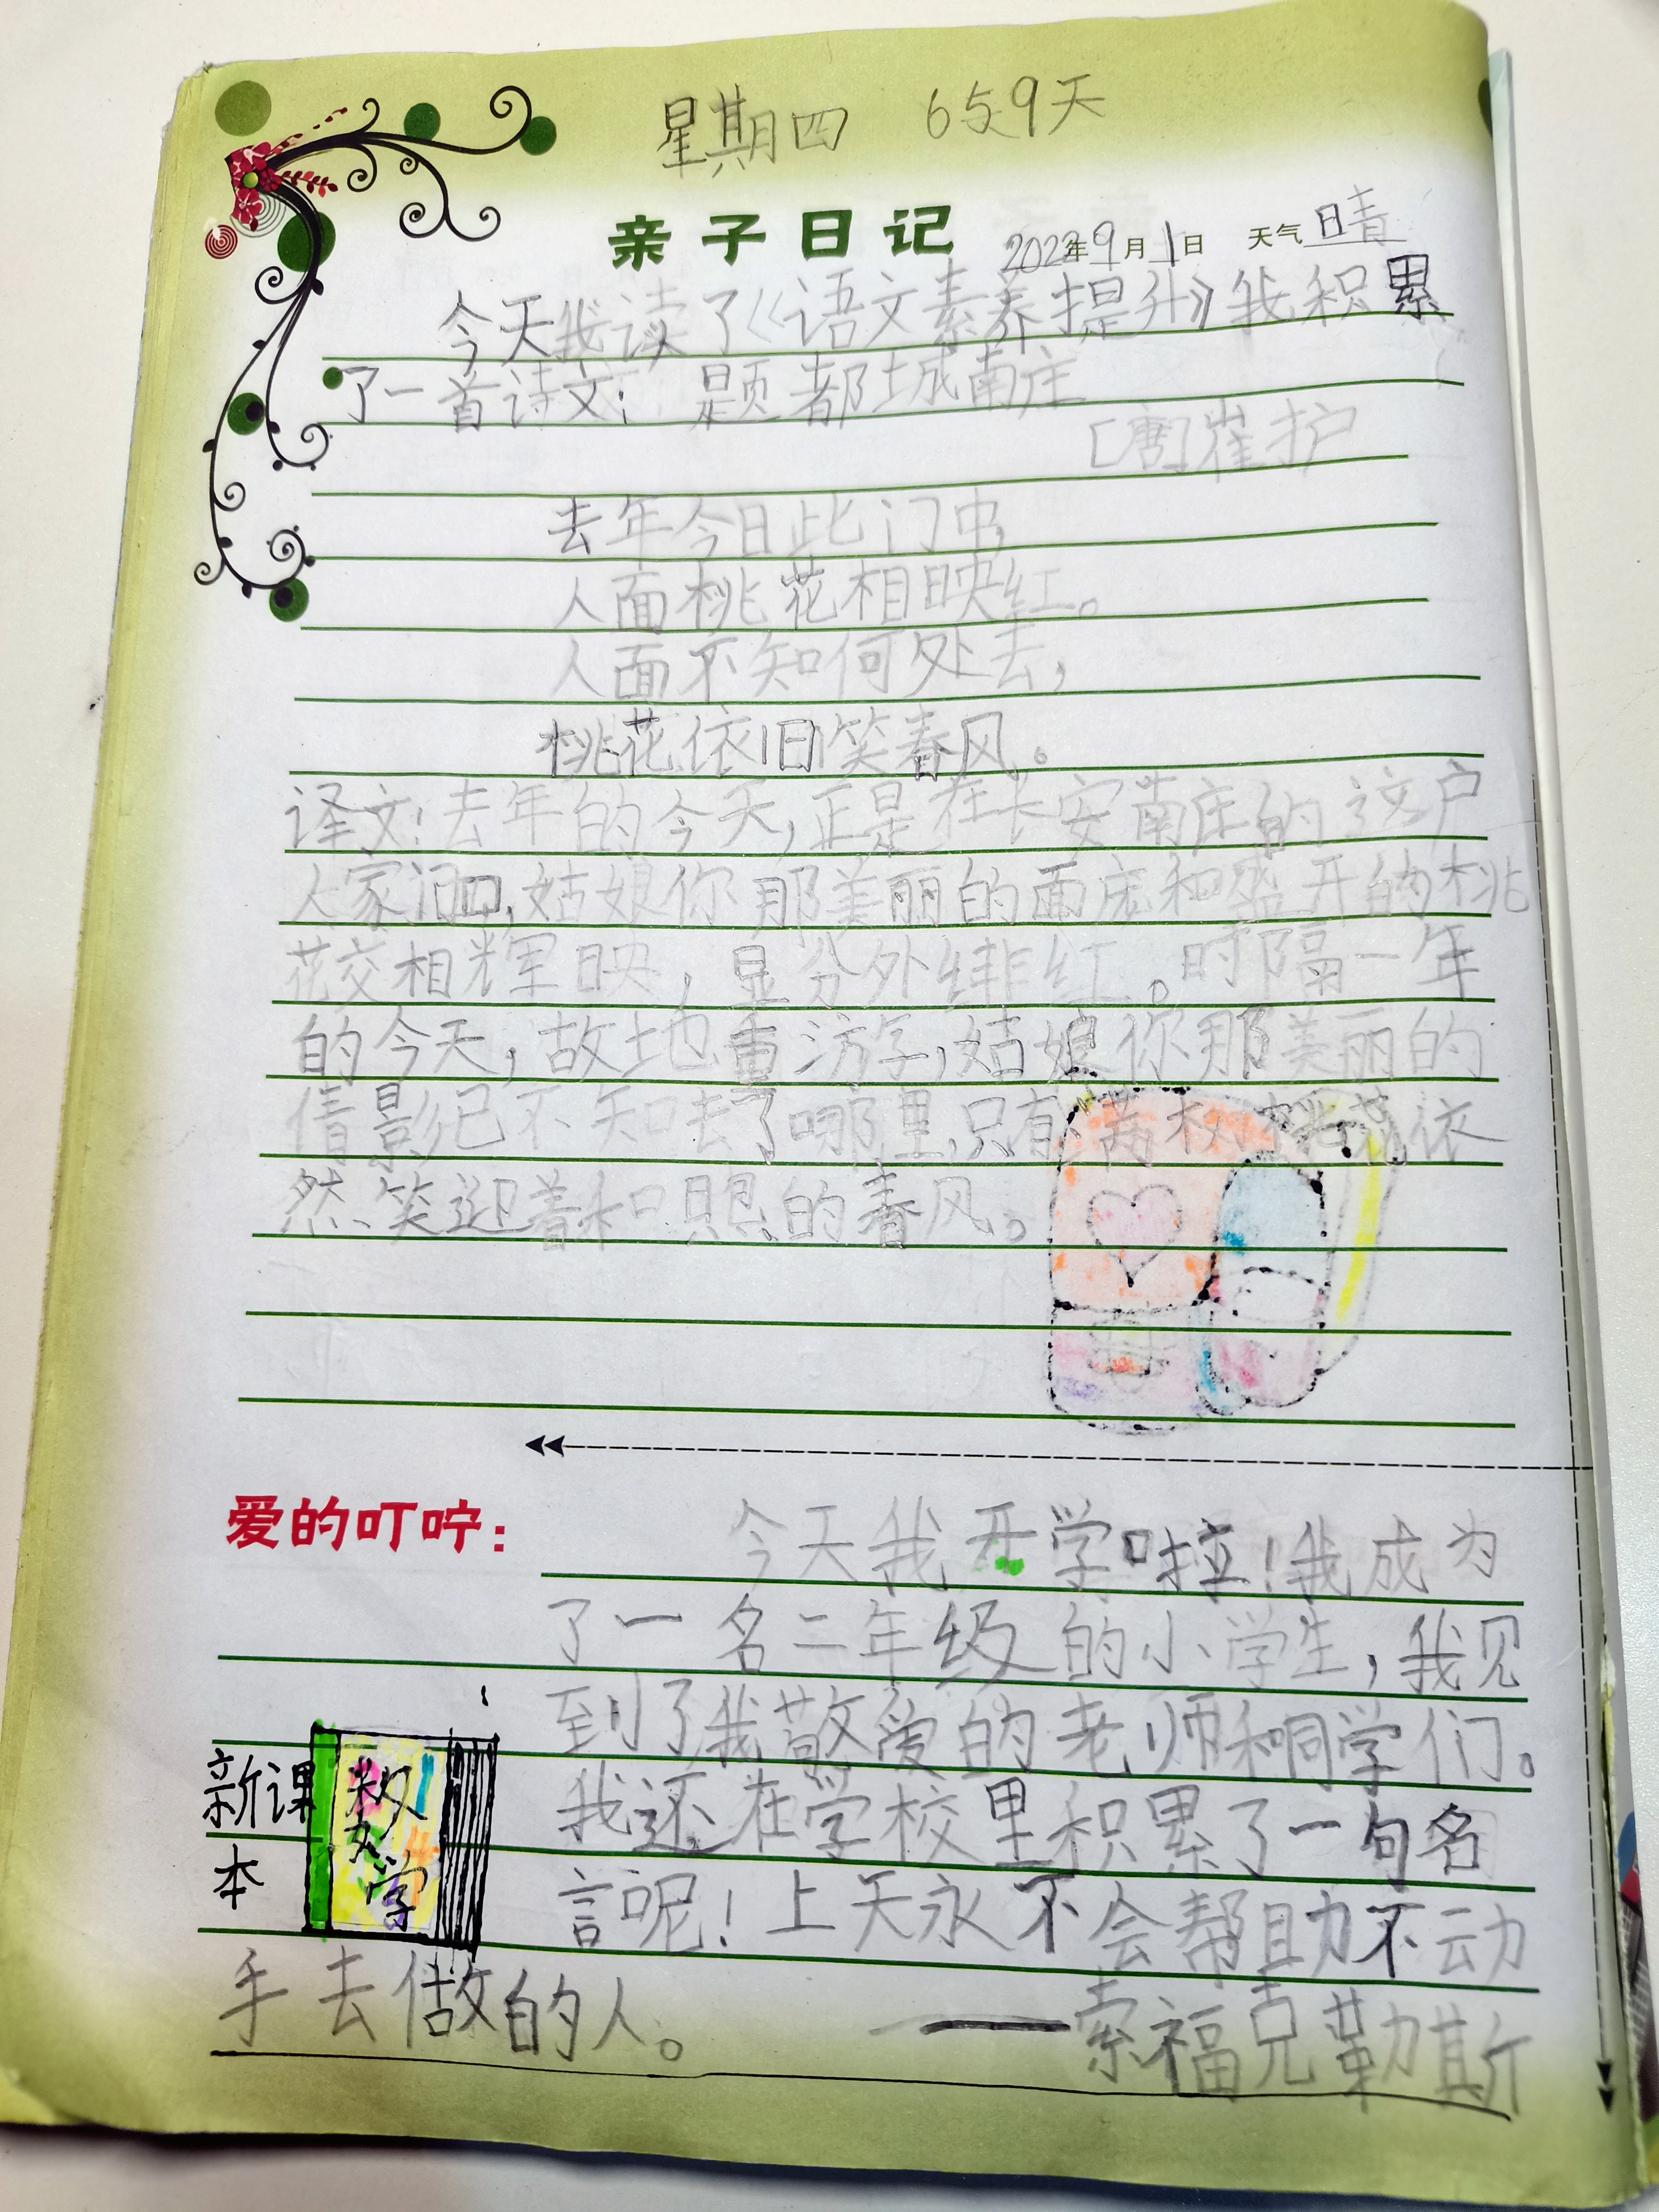 星期四 659天
亲子日记 2022年9月1日 天气 晴
今天我读了《语文素养提升》我积累
了一首诗文： 题都城南庄
[唐]崔护
去年今日此门中，
人面桃花相映红。
人面不知何处去，
桃花依旧笑春风。
译文：去年的今天，正是在长安南庄的这户
人家门口，姑娘你那美丽的面庞和盛开的桃
花交相辉映，显分外绯红。时隔一年
的今天，故地重游，姑娘你那美丽的
倩影已不知去了哪里，只有满树桃花依
然笑迎着和煦的春风。
爱的叮咛： 今天我开学啦！我成为
了一名二年级的小学生，我见
到了我敬爱的老师和同学们。
我还在学校里积累了一句名
言呢！上天永不会帮助不动
手去做的人。 ——索福克勒斯
新课
本
数学